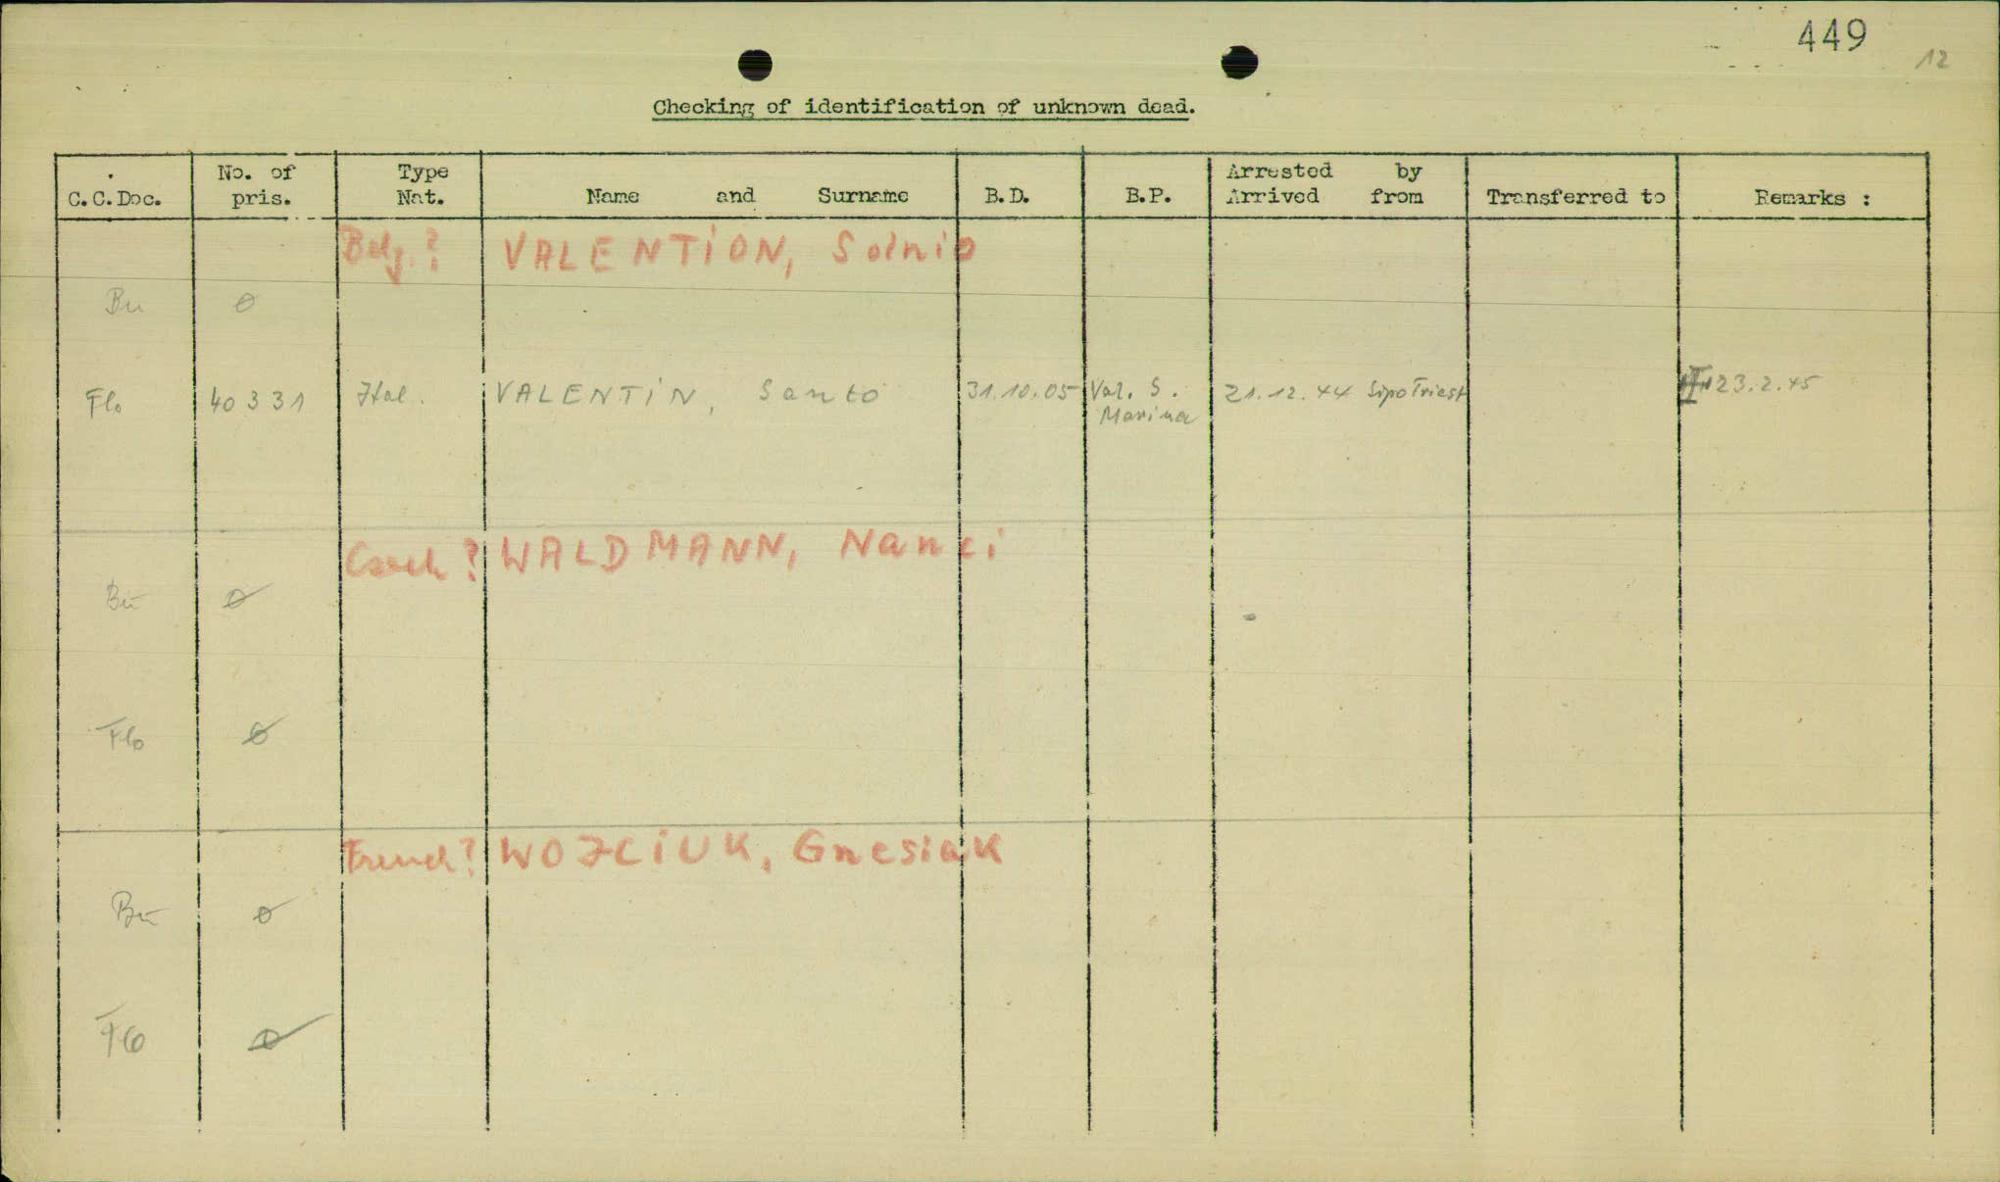 449
12
Checking of identification of unknown dead.
C.C.Doc. No. of pris. Type Nat. Name and Surname B.D. B.P. Arrested by Arrived from Transferred to Remarks :
Belg.? VALENTiON, Solnio
Bu ø
Flo 40331 Ital. VALENTiN, Santo 31.10.05 Val. S. Marina 21.12.44 Sipo Triest 23.2.45
Czech? WALDMANN, Nanci
Bu ø
Flo ø
French? WOJCiUK, Gnesiak
Bu ø
Flo ø